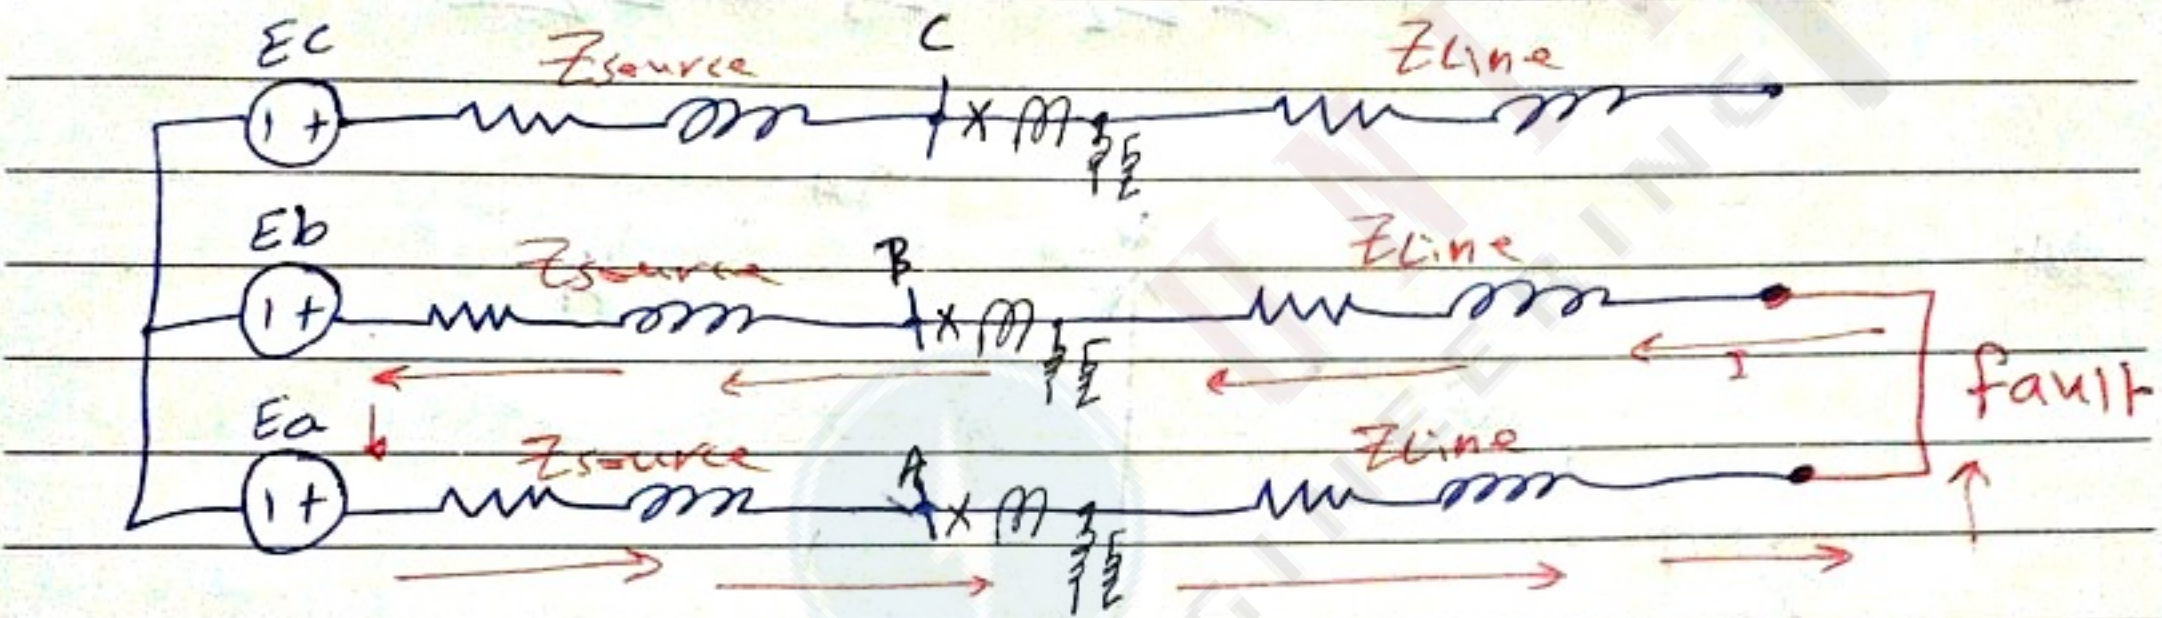 Ec Zsource C ZLine
+
Eb Zsource B ZLine
+
I
fault
Ea Zsource A ZLine
+